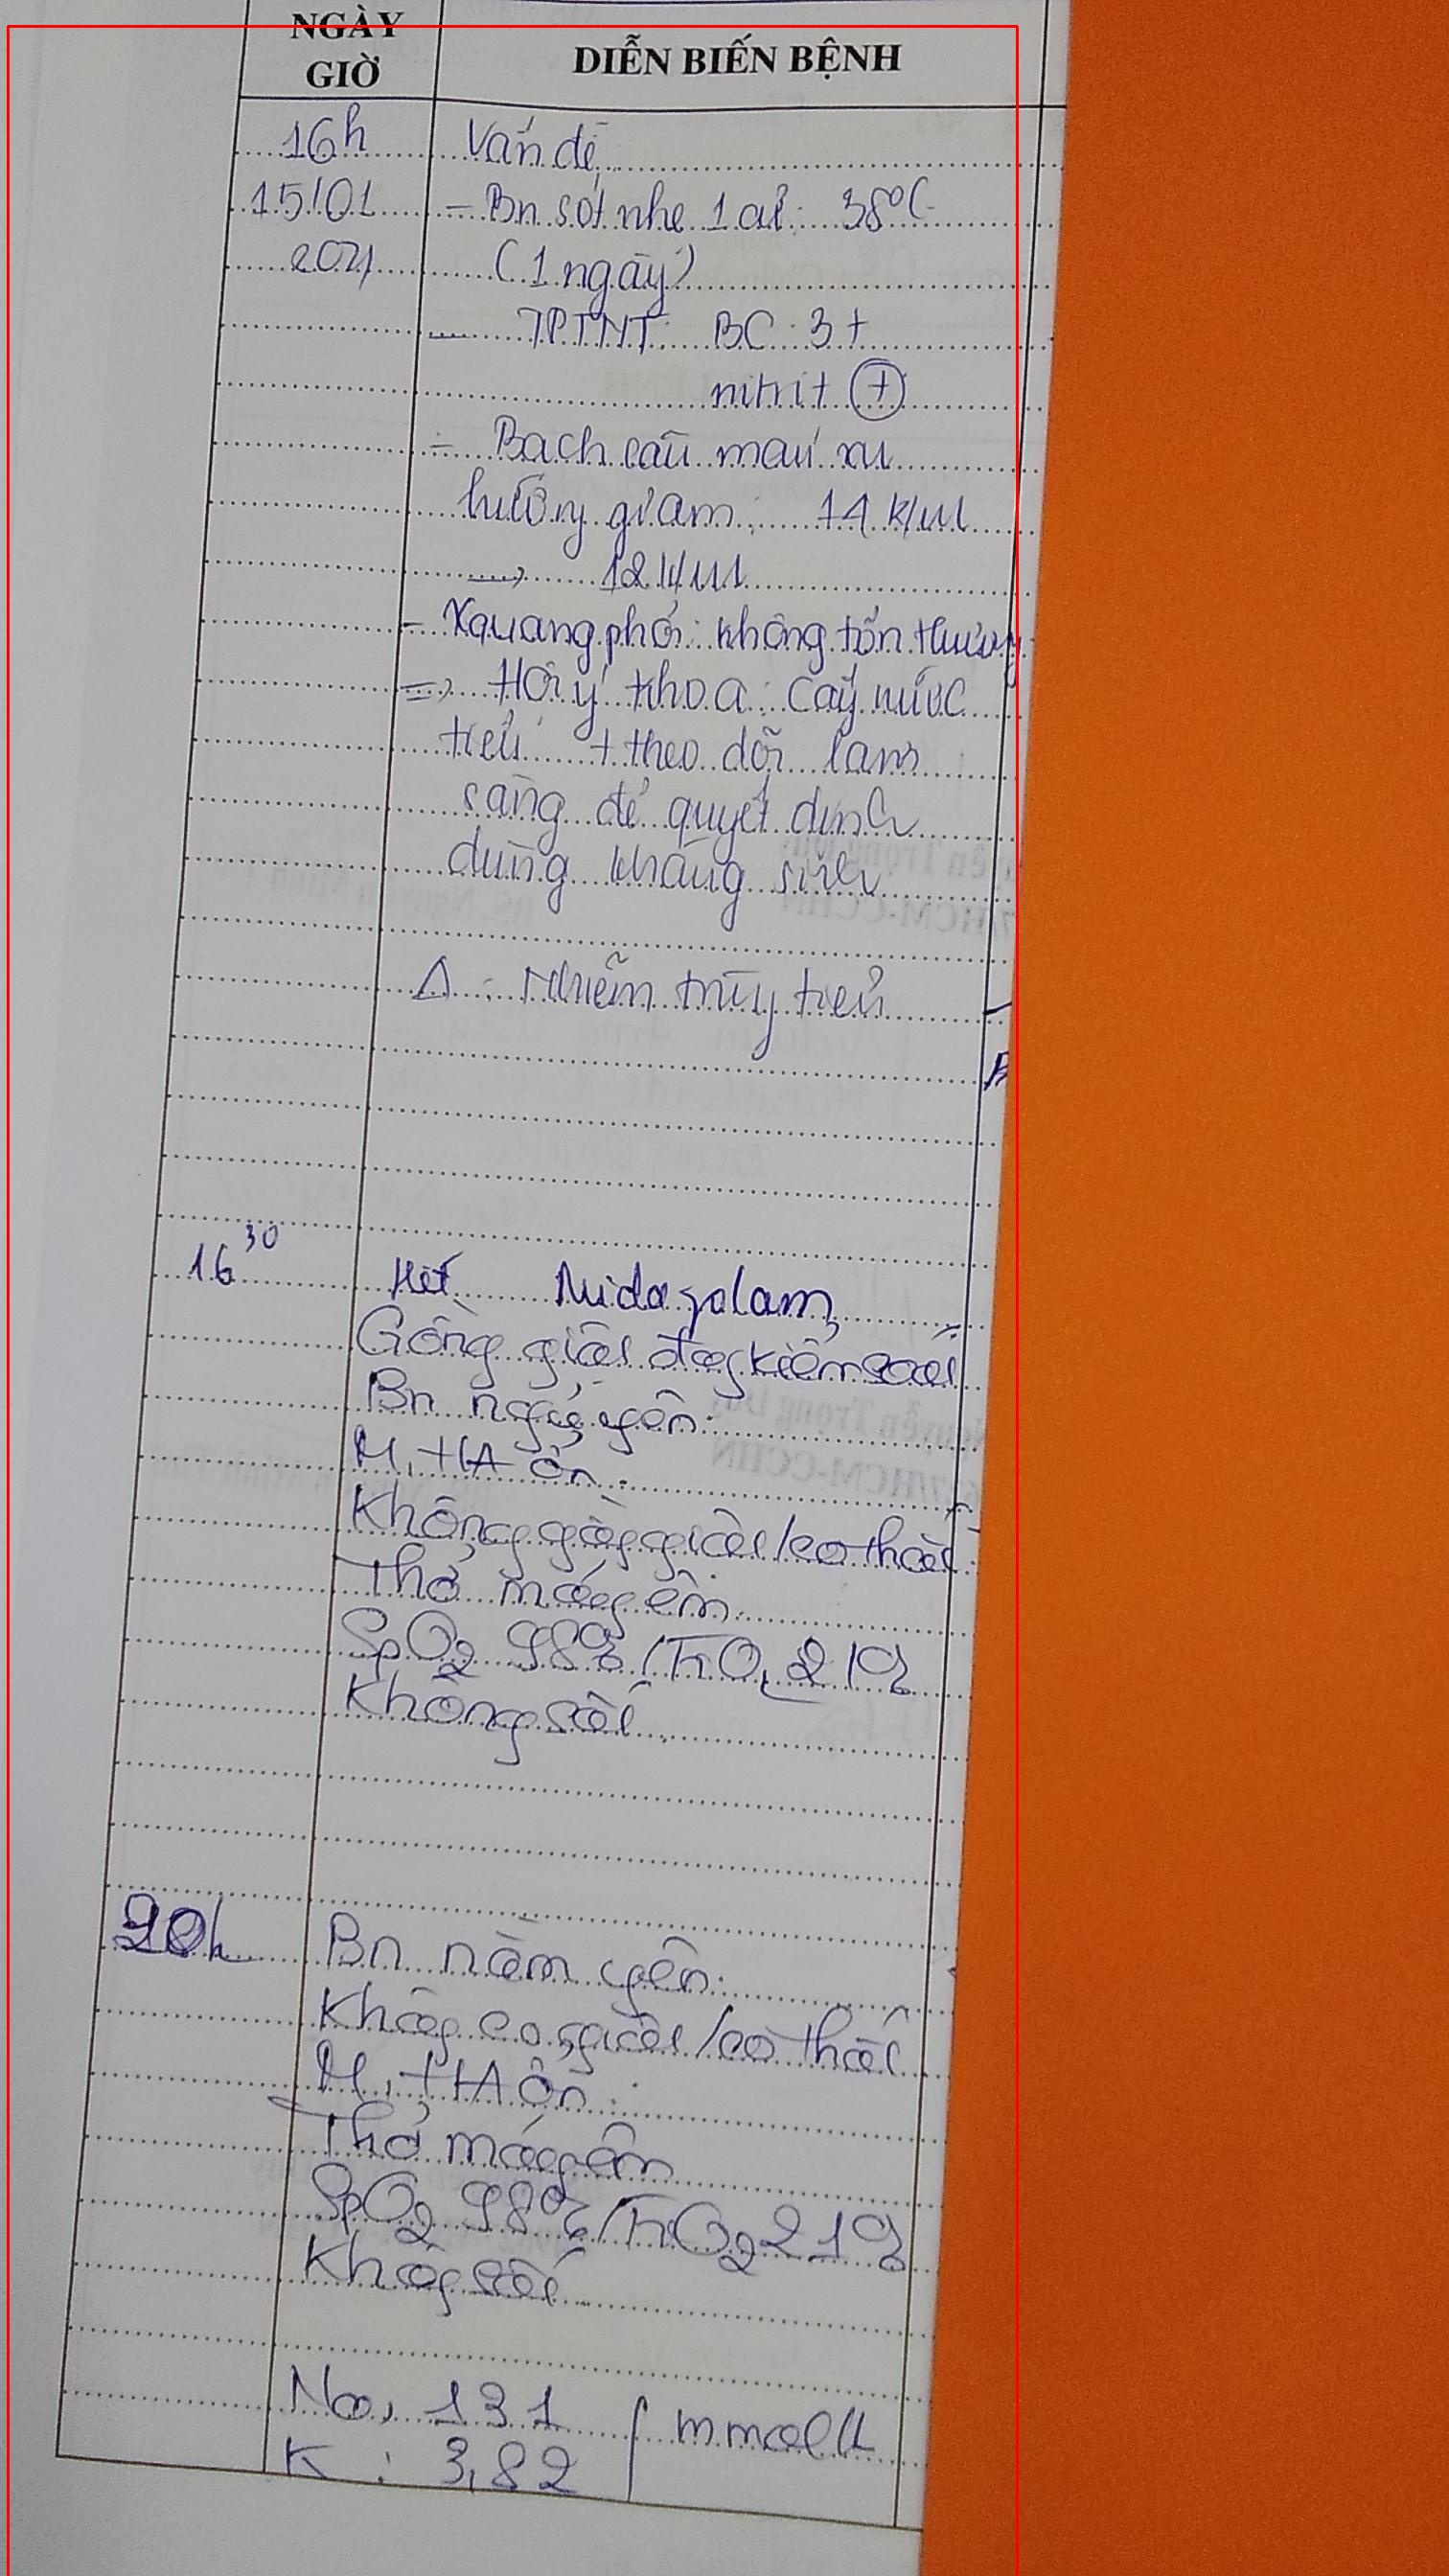 NGÀY
GIỜ
DIỄN BIẾN BỆNH
16h Vấn đề
15/01 - Bn sốt nhẹ 1 : 38°C
2021 (1 ngày)
- TPTNT: BC: 3+
nitrit (+)
- Bạch cầu máu xu
hướng giảm: 14 k/ul
→ 12 k/ul
- Xquang phổi: không tổn thương
=> Hội ý khoa: Cấy nước
tiểu + theo dõi lâm
sàng để quyết định
dùng kháng sinh
Δ: Nhiễm trùng tiểu
16 30 Hết Midazolam
Gồng giật đang kiểm soát
Bn ngủ yên.
M, HA ổn.
Không gồng giật/co thắt.
Thở máy êm.
SpO2 98%/FiO2 21%
Không sốt.
20h Bn nằm yên.
Không co giật/co thắt
M, HA ổn.
Thở máy êm
SpO2 98%/FiO2 21%
Không sốt.
Na, 131 mmol/l
K : 3,82